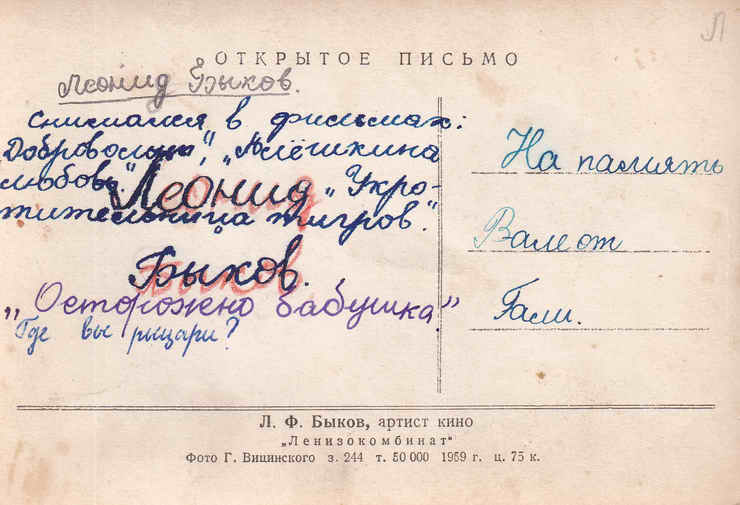 Л
ОТКРЫТОЕ ПИСЬМО
Леонид Быков.
снимался в фильмах:
Добровольцы", „Алёшкина
любовь" „Укро-
Леонид
тительница тигров".
Быков.
„Осторожно бабушка"
Где вы рыцари?
На память
Вале от
Гали.
Л. Ф. Быков, артист кино
„Ленизокомбинат"
Фото Г. Вицинского з. 244 т. 50 000 1959 г. ц. 75 к.